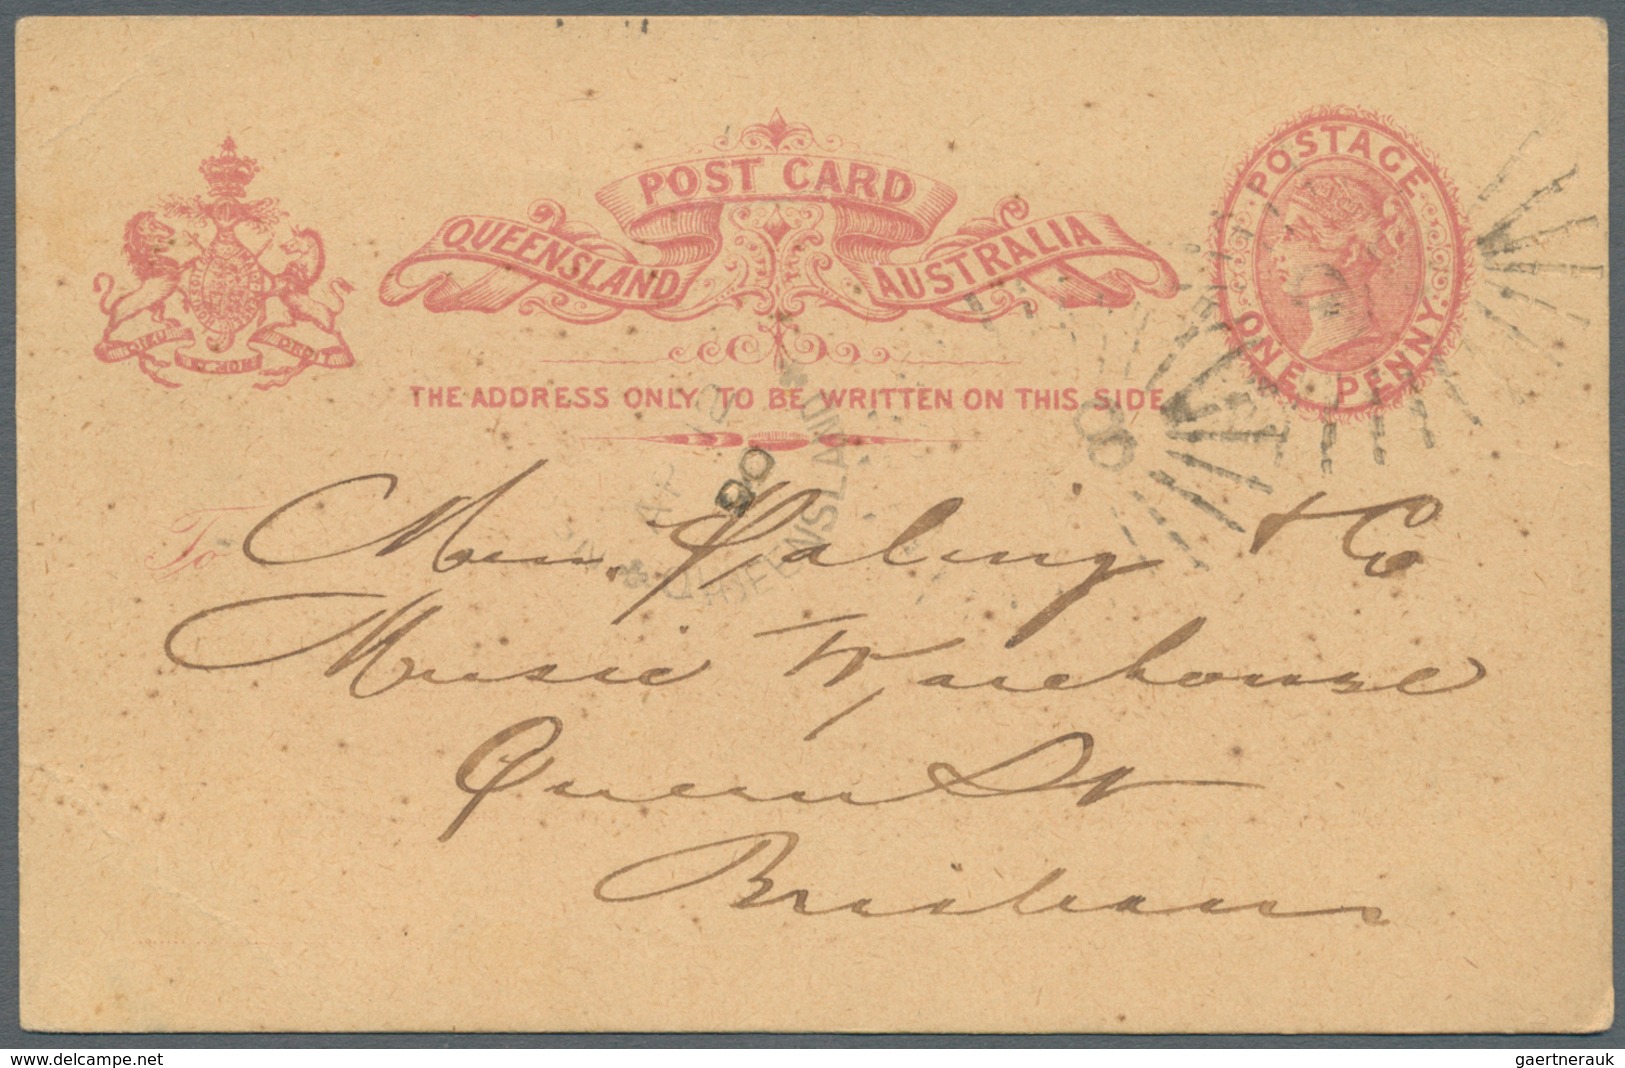 POST CARD
QUEENSLAND AUSTRALIA
POSTAGE
ONE PENNY
DIEU ET MON DROIT
THE ADDRESS ONLY TO BE WRITTEN ON THIS SIDE
AP 12
90
QUEENSLAND
To Messrs. Paling & Co
Music Warehouse
Queen St
Brisbane
www.delcampe.net
gaertnerauk